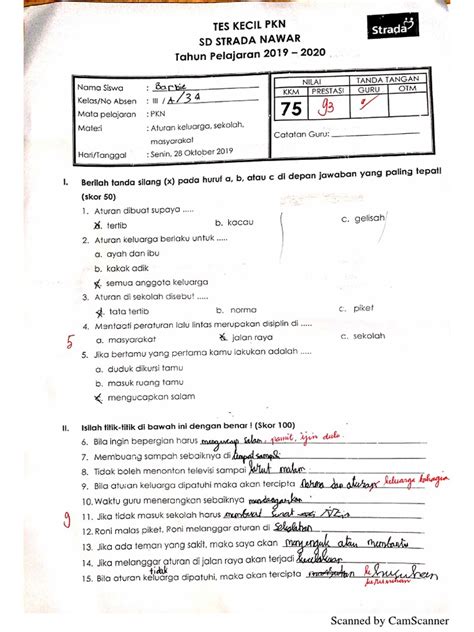 TES KECIL PKN
SD STRADA NAWAR
Tahun Pelajaran 2019 – 2020
Strada
Nama Siswa : Barbie
Kelas/No Absen : III / A/34
Mata pelajaran : PKN
Materi : Aturan keluarga, sekolah,
masyarakat
Hari/Tanggal : Senin, 28 Oktober 2019
NILAI TANDA TANGAN
KKM PRESTASI GURU OTM
75 93
Catatan Guru:
I. Berilah tanda silang (x) pada huruf a, b, atau c di depan jawaban yang paling tepat!
(skor 50)
1. Aturan dibuat supaya .....
a. tertib b. kacau c. gelisah
2. Aturan keluarga berlaku untuk .....
a. ayah dan ibu
b. kakak adik
c. semua anggota keluarga
3. Aturan di sekolah disebut .....
a. tata tertib b. norma c. piket
4. Mentaati peraturan lalu lintas merupakan disiplin di .....
5 a. masyarakat b. jalan raya c. sekolah
5. Jika bertamu yang pertama kamu lakukan adalah .....
a. duduk dikursi tamu
b. masuk ruang tamu
c. mengucapkan salam
II. Isilah titik-titik di bawah ini dengan benar ! (Skor 100)
6. Bila ingin bepergian harus mengucap salam, pamit, ijin dulu
7. Membuang sampah sebaiknya di tempat sampah
8. Tidak boleh menonton televisi sampai larut malam
9. Bila aturan keluarga dipatuhi maka akan tercipta keluarga bahagia
10. Waktu guru menerangkan sebaiknya mendengarkan
9 11. Jika tidak masuk sekolah harus membuat surat izin
12. Roni malas piket. Roni melanggar aturan di sekolahan
13. Jika ada teman yang sakit, maka saya akan menjenguk atau membantu
14. Jika melanggar aturan di jalan raya akan terjadi kecelakaan
tidak
15. Bila aturan keluarga dipatuhi, maka akan tercipta
Scanned by CamScanner